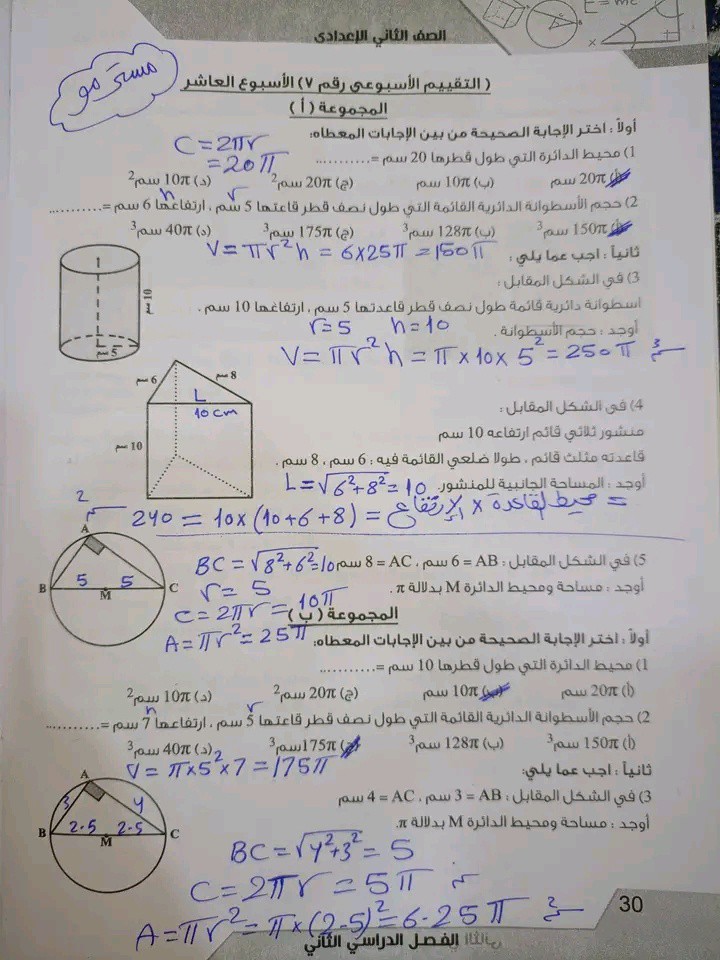 E = mc
x
الصف الثاني الإعدادى
( التقييم الأسبوعى رقم ٧) الأسبوع العاشر
المجموعة ( أ )
أولاً : اختر الإجابة الصحيحة من بين الإجابات المعطاه:
C = 2πr
= 20π
1) محيط الدائرة التي طول قطرها 20 سم = ...........
(أ) 20π سم (ب) 10π سم (ج) 20π سم² (د) 10π سم²
h r
2) حجم الأسطوانة الدائرية القائمة التي طول نصف قطر قاعتها 5 سم ، ارتفاعها 6 سم = ...........
(أ) 150π سم³ (ب) 128π سم³ (ج) 175π سم³ (د) 40π سم³
V = πr²h = 6×25π = 150π
ثانياً : اجب عما يلي :
3) في الشكل المقابل :
اسطوانة دائرية قائمة طول نصف قطر قاعدتها 5 سم ، ارتفاعها 10 سم .
أوجد : حجم الأسطوانة .
r = 5 h = 10
V = πr²h = π × 10 × 5² = 250π سم³
10 سم
5 سم
4) في الشكل المقابل :
منشور ثلاثي قائم ارتفاعه 10 سم
قاعدته مثلث قائم ، طولا ضلعي القائمة فيه : 6 سم ، 8 سم .
أوجد : المساحة الجانبية للمنشور.
L = √6²+8² = 10
6 سم
8 سم
L
10 cm
10 سم
= محيط القاعدة × الإرتفاع = (8+6+10)×10 = 240 سم²
5) في الشكل المقابل : AB = 6 سم ، AC = 8 سم
BC = √8²+6² = 10
أوجد : مساحة ومحيط الدائرة M بدلالة π .
r = 5
C = 2πr = 10π
A = πr² = 25π
A
B
5
M
5
C
المجموعة ( ب )
أولاً : اختر الإجابة الصحيحة من بين الإجابات المعطاه:
1) محيط الدائرة التي طول قطرها 10 سم = ...........
(أ) 20π سم (ب) 10π سم (ج) 20π سم² (د) 10π سم²
h r
2) حجم الأسطوانة الدائرية القائمة التي طول نصف قطر قاعتها 5 سم ، ارتفاعها 7 سم = ...........
(أ) 150π سم³ (ب) 128π سم³ (ج) 175π سم³ (د) 40π سم³
V = π×5²×7 = 175π
ثانياً : اجب عما يلي:
3) في الشكل المقابل : AB = 3 سم ، AC = 4 سم
أوجد : مساحة ومحيط الدائرة M بدلالة π.
A
3
4
B
2.5
M
2.5
C
BC = √4²+3² = 5
C = 2πr = 5π سم
A = πr² = π×(2.5)² = 6.25π سم²
30
الفصل الدراسي الثاني